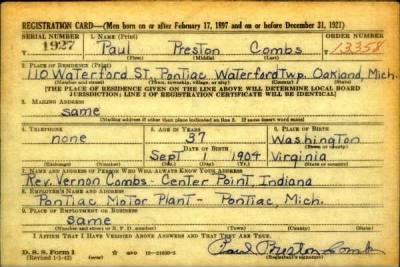 REGISTRATION CARD—(Men born on or after February 17, 1897 and on or before December 31, 1921)
SERIAL NUMBER 1. NAME (Print) ORDER NUMBER
1927 Paul Preston Combs 13358
(First) (Middle) (Last)
2. PLACE OF RESIDENCE (Print)
110 Waterford St, Pontiac Waterford Twp. Oakland, Mich.
(Number and street) (Town, township, village, or city) (County) (State)
[THE PLACE OF RESIDENCE GIVEN ON THE LINE ABOVE WILL DETERMINE LOCAL BOARD
JURISDICTION; LINE 2 OF REGISTRATION CERTIFICATE WILL BE IDENTICAL]
3. MAILING ADDRESS
same
(Mailing address if other than place indicated on line 2. If same insert word same)
4. TELEPHONE 5. AGE IN YEARS 6. PLACE OF BIRTH
none 37 Washington
DATE OF BIRTH (Town or county)
Sept 1904 Virginia
(Exchange) (Number) (Mo.) (Day) (Yr.) (State or country)
7. NAME AND ADDRESS OF PERSON WHO WILL ALWAYS KNOW YOUR ADDRESS
Rev. Vernon Combs - Center Point, Indiana
8. EMPLOYER'S NAME AND ADDRESS
Pontiac Motor Plant - Pontiac, Mich.
9. PLACE OF EMPLOYMENT OR BUSINESS
same
(Number and street or R. F. D. number) (Town) (County) (State)
I AFFIRM THAT I HAVE VERIFIED ABOVE ANSWERS AND THAT THEY ARE TRUE.
D. S. S. Form 1 Paul Preston Combs
(Revised 1-1-42) (over)